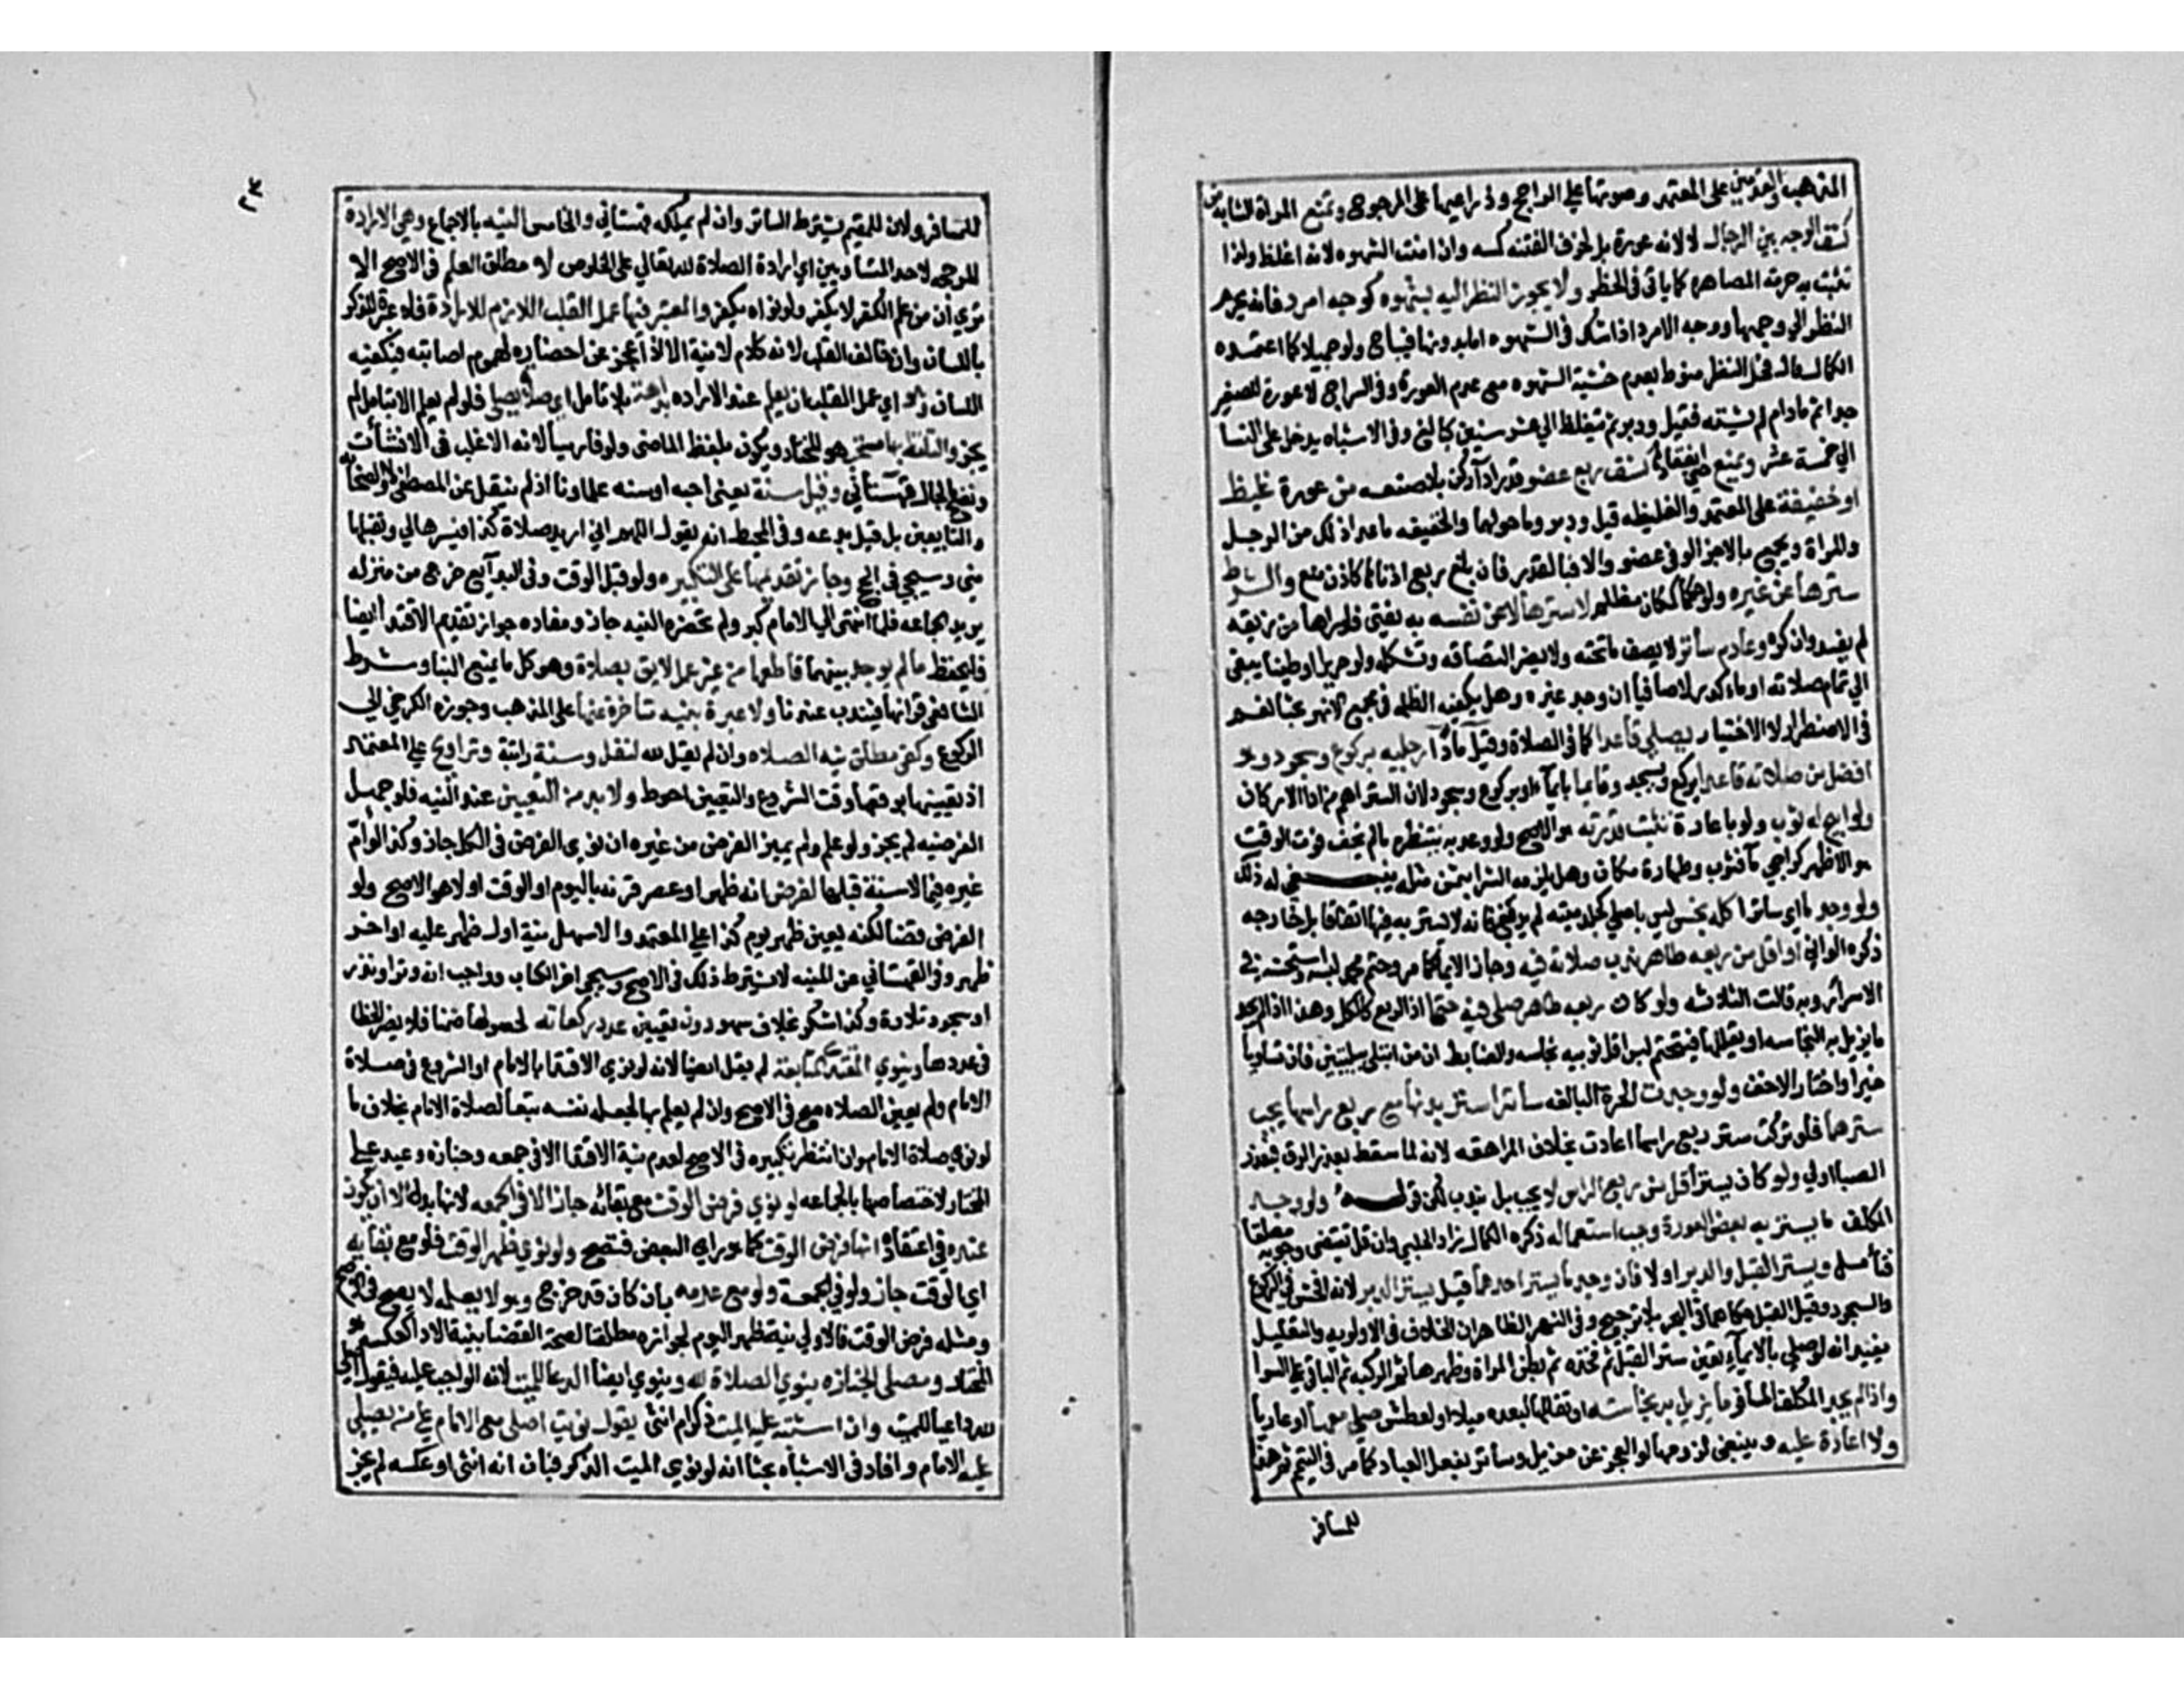 المذهب والقدمين على المعتمد وصوتها على الراجح وذراعيها على المرجوح وتمنع المراة الشابة من
كشف الوجه بين الرجال لا لانه عورة بل لخوف الفتنه كمسه وان امنت الشهوه لانه اغلظ ولذا
تثبت به حرمة المصاهره كما ياتي في الحظر ولا يجوز النظر اليه بشهوه كوجه امرد فانه يحرم
النظر الي وجهها ووجه الامرد اذا شك في الشهوه اما بدونها فيباح ولو جميلا كما اعتمده
الكمال قال فحل النظر منوط بعدم خشية الشهوه مع عدم العورة وفي السراج لا عورة للصغير
جدا ثم مادام لم يشته فقبل ودبر ثم تغلظ الي عشر سنين كبالغ وفي الاشباه يدخل على النسا
الي خمسة عشر ويمنع حتى انعقادها كشف ربع عضو قدر ادآ ركن بلا صنعه من عورة غليظ
او خفيفة على المعتمد والغليظه قبل ودبر وما حولهما والخفيفه ما عدا ذلك من الرجل
والمراة ويجمع بالاجزا لو في عضو والا فبالقدر فان بلغ ربع ادناها كاذن منع والشرط
سترها عن غيره ولو حكما كمكان مظلم لا سترها عن نفسه به يفتي فلو راها من زيقه
لم يفسد وان كره وعادم ساتر لا يصف ما تحته ولا يضر التصاقه وتشكله ولو حريرا او طينا يبقي
الي تمام صلاته او ماء كدر لا صافيا ان وجد غيره وهل يكفيه الظلمه في مجمع الانهر بحثا نعم
في الاضطرار لا الاختيار يصلي قاعدا كما في الصلاة وقيل مادا رجليه بركوع وسجود وهو
افضل من صلاته قاعدا يركع ويسجد وقايما بايماء او بركوع وسجود لان الستر اهم من ادا الاركان
ولو ابيح له ثوب ولو باعارة ثبتت قدرته هو الاصح ولو وعد به ينتظره مالم يخف فوت الوقت
هو الاظهر كراجي مآ وثوب وطهارة مكان وهل يلزمه الشرا بثمن مثله ينبغي له ذلك
ولو وجد ما اي ساترا كله نجس ليس باصلي كجلد ميته لم يدبغ فانه لا يستر به فيها اتفاقا بل خارجه
ذكره الواني او اقل من ربعه طاهر ندب صلاته فيه وجاز الايما كما مر وحتم محمد لبسه واستحسنه في
الاسرار وبه قالت الثلاثه ولو كان ربعه طاهر صلى فيه حتما اذ الربع كالكل وهذا اذا لم يجد
ما يزيل به النجاسه او يقللها فيتحتم لبس اقل ثوبيه نجاسه والضابط ان من ابتلي ببليتين فان تساويا
خير او اختار الاخف ولو وجدت الحرة البالغه ساترا يستر بدنها مع ربع راسها يجب
سترهما فلو تركت ستر ربع راسها اعادت بخلاف المراهقه لانه لما سقط بعذر الرق فبعذر
الصبا اولي ولو كان يستر اقل من ربع الراس لا يجب بل يندب لكن قوله ولو وجد
المكلف ما يستر به بعض العورة وجب استعماله ذكره الكمال زاد الحلبي وان قل يقتضي وجوبه مطلقا
فتأمله ويستر القبل والدبر اولا فان وجد ما يستر احدهما قيل يستر الدبر لانه افحش في الركوع
والسجود وقيل القبل حكاهما في البحر بلا ترجيح وفي النهر الظاهر ان الخلاف في الاولويه والتعليل
يفيد انه لو صلي بالايماء تعين ستر القبل ثم فخذه ثم بطن المراة وظهرها ثم الركبه ثم الباقي على السوا
واذا لم يجد المكلف المسافر ما يزيل به نجاسته او يقللها لبعده ميلا او لعطش صلى معها او عاريا
ولا اعادة عليه وينبغي لزومها لو العجز عن مزيل وساتر بفعل العباد كما مر في التيمم ثم هذا
للمسافر
للمسافر ولان للمقيم يشترط الساتر وان لم يملكه قهستاني والخامس النيه بالاجماع وهي الارادة
المرجحه لاحد المتساويين اي ارادة الصلاة لله تعالي على الخلوص لا مطلق العلم في الاصح الا
تري ان من علم الكفر لا يكفر ولو نواه يكفر والمعتبر فيها عمل القلب اللازم للارادة فلا عبرة للذكر
باللسان وان خالف القلب لانه كلام لا نية الا اذا عجز عن احضاره لهموم اصابته فيكفيه
اللسان وهو اي عمل القلب ان يعلم عند الاراده بداهة بلا تامل اي صلاة يصلي فلو لم يعلم الا بتامل لم
يجز والتلفظ بها مستحب هو المختار ويكون بلفظ الماضي ولو فارسيا لانه الاغلب في الانشآت
وتصح بالحال قهستاني وقيل سنة يعني احبه او سنه علماونا اذ لم ينقل عن المصطفى ولا الصحابه
والتابعين بل قيل بدعه وفي المحيط انه يقول اللهم اني اريد صلاة كذا فيسرها لي وتقبلها
مني وسيجي في الحج وجاز تقديمها على التكبيره ولو قبل الوقت وفي البدآيع خرج من منزله
يريد الجماعه فلما انتهى الي الامام كبر ولم تحضره النيه جاز ومفاده جواز تقديم الاقتدا ايضا
فليحفظ مالم يوجد بينهما قاطع من غير عمل لايق بصلاة وهو كل ما يمنع البنا وشرط
الشافعي قرانها فيندب عندنا ولا عبرة بنيه متاخرة عنها على المذهب وجوزه الكرخي الي
الركوع وكفى مطلق نيه الصلاه وان لم يقل لله لنفل وسنة راتبة وتراويح على المعتمد
اذ تعيينها بوقوعها وقت الشروع والتعيين احوط ولا بد من التعيين عند النيه فلو جهل
الفرضيه لم يجز ولو علم ولم يميز الفرض من غيره ان نوي الفرض في الكل جاز وكذا لو ام
غيره فيما لا سنة قبلها لفرض انه ظهر او عصر قرنه باليوم او الوقت او لا هو الاصح ولو
الفرض قضا لكنه يعين ظهر يوم كذا على المعتمد والاسهل نية اول ظهر عليه او اخر
ظهر وفي القهستاني عن المنيه لا يشترط ذلك في الاصح وسيجي اخر الكتاب وواجب انه وتر او نذر
او سجود تلاوة وكذا شكر بخلاف سهو دون تعيين عدد ركعاته لحصولها ضمنا فلا يضر الخطا
في عددها وينوي المقتدي المتابعة لم يقل ايضا لانه لو نوي الاقتدا بالامام او الشروع في صلاة
الامام ولم يعين الصلاه صح في الاصح وان لم يعلم بها لجعله نفسه تبعا لصلاة الامام بخلاف ما
لو نوي صلاة الامام وان انتظر تكبيره في الاصح لعدم نية الاقتدا الا في جمعه وجنازه وعيد على
المختار لاختصاصها بالجماعه لو نوي فرض الوقت مع بقائه جاز الا في الجمعه لانها بدل الا ان يكون
عنده في اعتقاده انها فرض الوقت كما هو راي البعض فتصح ولو نوي ظهر الوقت فلو مع بقايه
اي الوقت جاز ولو في الجمعة ولو مع عدمه بان كان قد خرج وهو لا يعلمه لا يصح في الاصح
ومثله فرض الوقت فالاولي نية ظهر اليوم لجوازه مطلقا لصحة القضا بنية الادا كعكسه هو
المختار ومصلي الجنازه ينوي الصلاة لله وينوي ايضا الدعا للميت لانه الواجب عليه فيقول اصلي
لله داعيا للميت وان اشتبه عليه الميت ذكر ام انثى يقول نويت اصلي مع الامام على من يصلي
عليه الامام وافاد في الاشباه بحثا انه لو نوي الميت الذكر فبان انه انثى او عكسه لم يجز